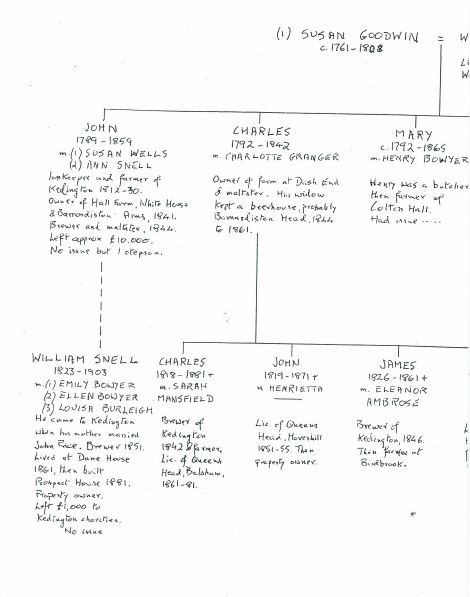 (1) SUSAN GOODWIN = W
c.1761-1808
Li
Wo
JOHN
1789-1859
m.(1) SUSAN WELLS
(2) ANN SNELL
Innkeeper and farmer of
Kedington 1812-30.
Owner of Hall Farm, White Horse
& Barnardiston Arms, 1841.
Brewer and maltster, 1844.
Left approx £10.000.
No issue but 1 stepson.
CHARLES
1792-1842
m. CHARLOTTE GRANGER
Owner of farm at Dash End
& maltster. His widow
kept a beerhouse, probably
Barnardiston Head, 1844
to 1861.
MARY
c.1792-1865
m. HENRY BOWYER
Henry was a butcher
then farmer of
Colton Hall.
Had issue .....
WILLIAM SNELL
1823-1903
m.(1) EMILY BOWYER
(2) ELLEN BOWYER
(3) LOUISA BURLEIGH
He came to Kedington
when his mother married
John Race, Brewer 1851.
Lived at Dane House
1861, then built
Prospect House 1881.
Property owner.
Left £1,000 to
Kedington charities.
No issue
CHARLES
1818-1881+
m. SARAH
MANSFIELD
Brewer of
Kedington
1842 & farmer.
Lic. of Queens
Head,
1861-81.
JOHN
1819-1871+
m HENRIETTA
Lic. of Queens
Head, Haverhill
1851-55. Then
property owner.
JAMES
1826-1861+
m. ELEANOR
AMBROSE
Brewer of
Kedington, 1846.
Then farmer at
Birdbrook.